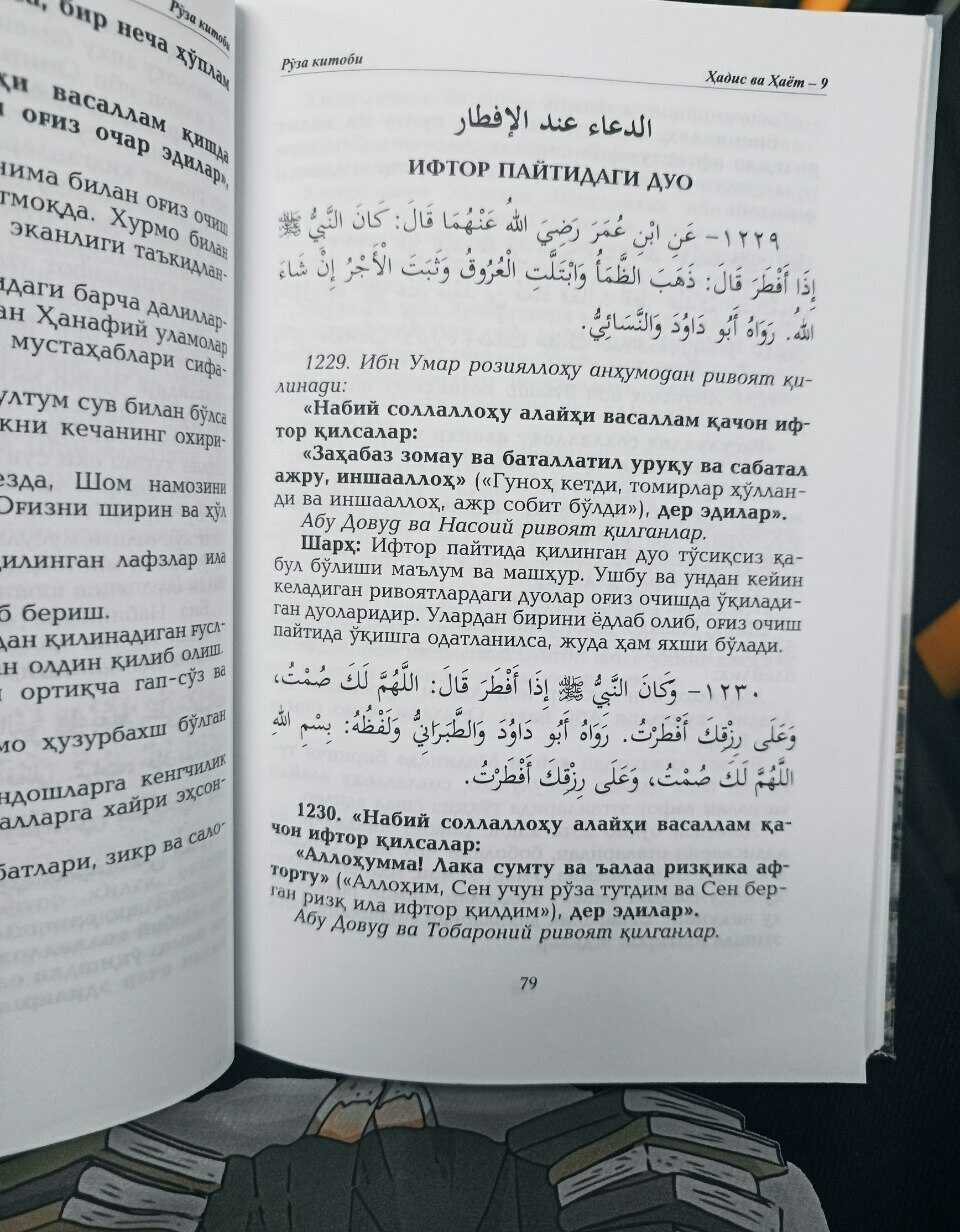 Рўза китоби
бир неча ҳўплам
васаллам қишда
оғиз очар эдилар»,
нима билан оғиз очиш
Хурмо билан
эканлиги таъкидлан-
барча далиллар-
Ҳанафий уламолар
мустаҳаблари сифа-
сув билан бўлса
кечанинг охири-
Шом намозини
Оғизни ширин ва ҳўл
лафзлар ила
бериш.
қилинадиган ғусл-
олдин қилиб олиш.
ортиқча гап-сўз ва
ҳузурбахш бўлган
кенгчилик
хайри эҳсон-
зикр ва сало-
Рўза китоби
Ҳадис ва Ҳаёт – 9
الدعاء عند الإفطار
ИФТОР ПАЙТИДАГИ ДУО
١٢٢٩- عَنِ ابْنِ عُمَرَ رَضِيَ اللهُ عَنْهُمَا قَالَ: كَانَ النَّبِيُّ ﷺ
إِذَا أَفْطَرَ قَالَ: ذَهَبَ الظَّمَأُ وَابْتَلَّتِ الْعُرُوقُ وَثَبَتَ الْأَجْرُ إِنْ شَاءَ
اللهُ. رَوَاهُ أَبُو دَاوُدَ وَالنَّسَائِيُّ.
1229. Ибн Умар розияллоҳу анҳумодан ривоят қи-
линади:
«Набий соллаллоҳу алайҳи васаллам қачон иф-
тор қилсалар:
«Заҳабаз зомау ва баталлатил уруқу ва сабатал
ажру, иншааллоҳ» («Гуноҳ кетди, томирлар ҳўллан-
ди ва иншааллоҳ, ажр собит бўлди»), дер эдилар».
Абу Довуд ва Насоий ривоят қилганлар.
Шарҳ: Ифтор пайтида қилинган дуо тўсиқсиз қа-
бул бўлиши маълум ва машҳур. Ушбу ва ундан кейин
келадиган ривоятлардаги дуолар оғиз очишда ўқилади-
ган дуоларидир. Улардан бирини ёдлаб олиб, оғиз очиш
пайтида ўқишга одатланилса, жуда ҳам яхши бўлади.
١٢٣٠- وَكَانَ النَّبِيُّ ﷺ إِذَا أَفْطَرَ قَالَ: اللَّهُمَّ لَكَ صُمْتُ،
وَعَلَى رِزْقِكَ أَفْطَرْتُ. رَوَاهُ أَبُو دَاوُدَ وَالطَّبَرَانِيُّ وَلَفْظُهُ: بِسْمِ اللهِ
اللَّهُمَّ لَكَ صُمْتُ، وَعَلَى رِزْقِكَ أَفْطَرْتُ.
1230. «Набий соллаллоҳу алайҳи васаллам қа-
чон ифтор қилсалар:
«Аллоҳумма! Лака сумту ва ъалаа ризқика аф-
торту» («Аллоҳим, Сен учун рўза тутдим ва Сен бер-
ган ризқ ила ифтор қилдим»), дер эдилар».
Абу Довуд ва Тобароний ривоят қилганлар.
79